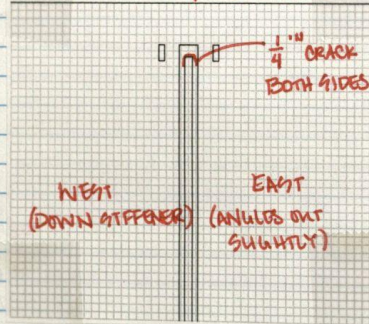 1/4" CRACK
BOTH SIDES
WEST
(DOWN STIFFENER)
EAST
(ANGLES OUT
SLIGHTLY)